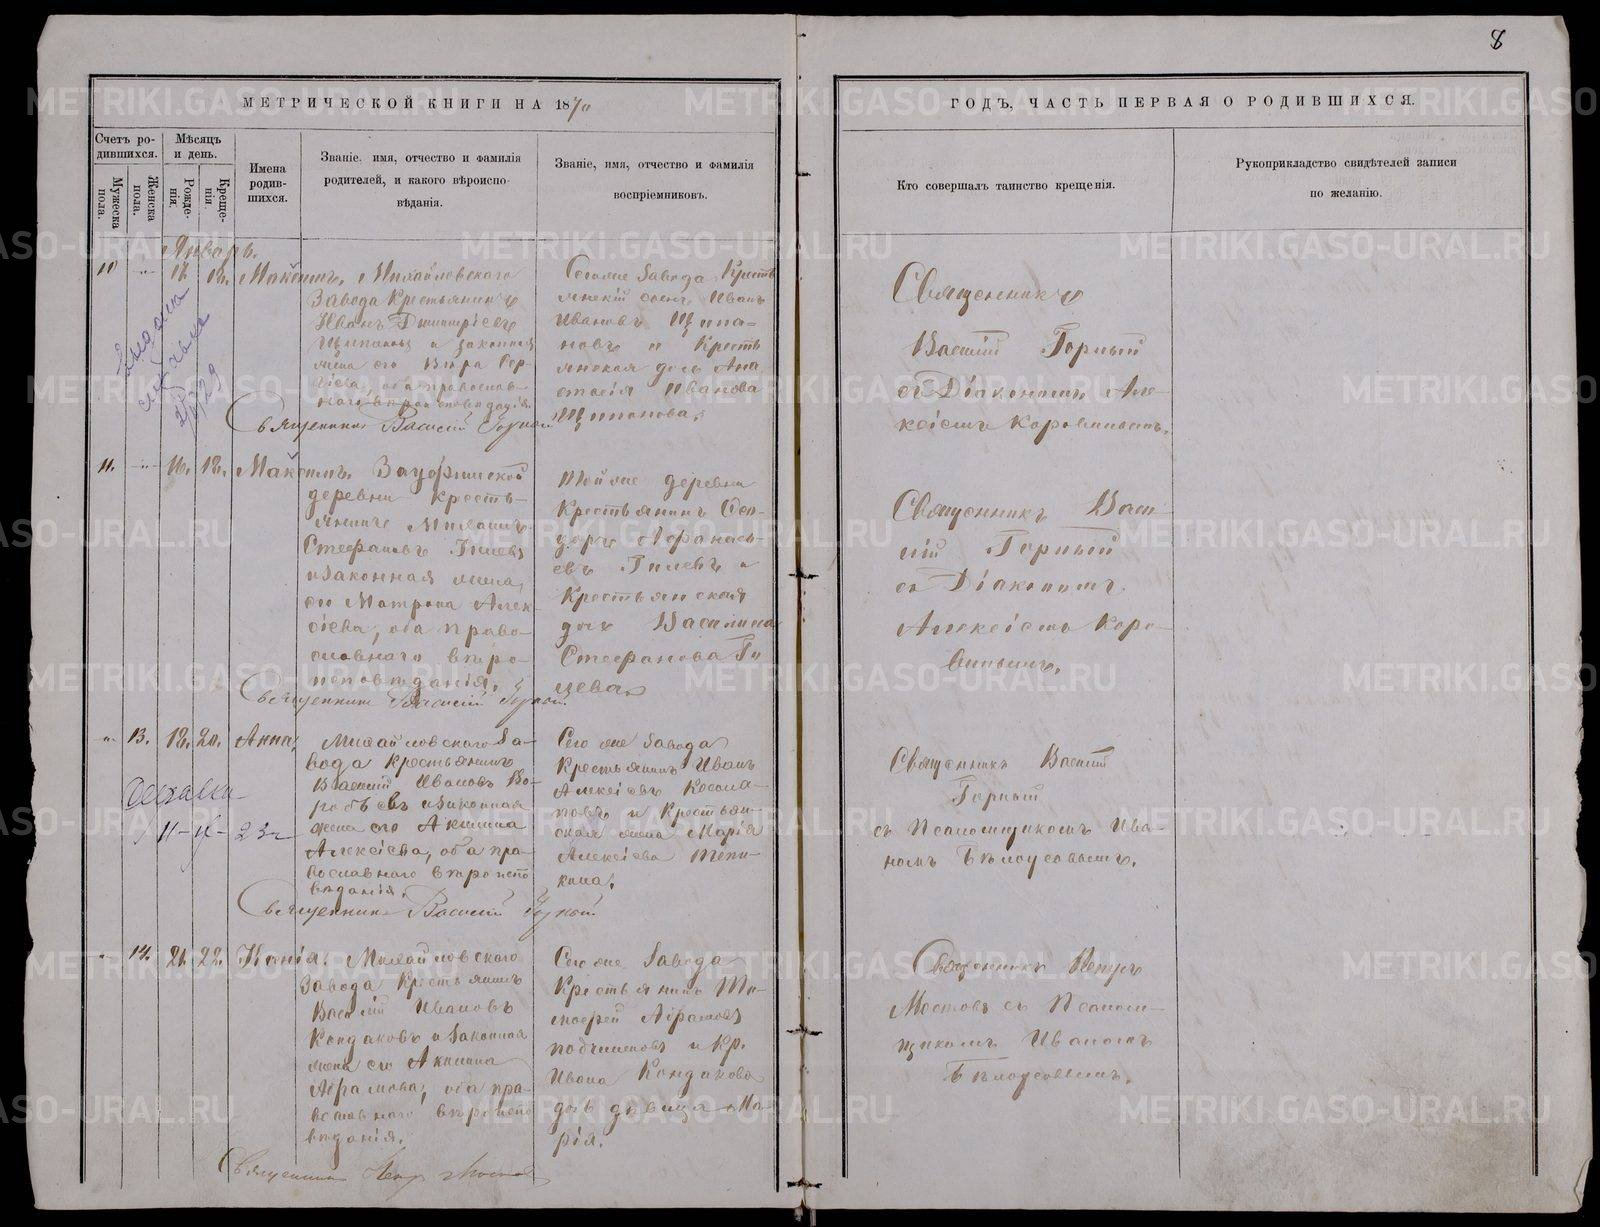 8
МЕТРИЧЕСКОЙ КНИГИ НА 1870
ГОДЪ, ЧАСТЬ ПЕРВАЯ О РОДИВШИХСЯ.
Счетъ ро-
дившихся.
Мужеска
пола.
Женска
пола.
Мѣсяцъ
и день.
Рожде-
нія.
Креще-
нія.
Имена
родив-
шихся.
Званіе, имя, отчество и фамилія
родителей, и какого вѣроиспо-
вѣданія.
Званіе, имя, отчество и фамилія
воспріемниковъ.
Кто совершалъ таинство крещенія.
Рукоприкладство свидѣтелей записи
по желанію.
Январь.
10 " 18. Максимъ. Михайловскаго
Завода Крестьянинъ
Иванъ Димитріевъ
и законная
жена его Вѣра Сер-
гіева, оба православ-
наго вѣроисповѣданія.
Священникъ Василій Горный
Сегоже Завода Кресть
янскій сынъ Иванъ
Ивановъ Щипа-
новъ и Кресть
янская дочь Ана
стасія Иванова
Щипанова.
Священникъ
Василій Горный
съ Діакономъ Але-
ксіемъ Коровинымъ.
11. " 16. 18. Максимъ. 
деревни кресть-
янинъ
Стефановъ Гилевъ
и законная жена
его Матрона Алек-
сіева, оба право-
славнаго вѣро-
исповѣданія.
Священникъ Василій Горной
Тойже деревни
Крестьянинъ
Афанась-
евъ Гилевъ и
Крестьянская
дочь Василиса
Стефанова Ги
лева.
Священникъ Васи
лій Горный
съ Діакономъ
Алексіемъ Коро-
винымъ.
" 13. 18. 20. Анна, Михайловскаго За-
вода крестьянинъ
Василій Ивановъ Во-
робьевъ и законная
жена его Акилина
Алексіева, оба пра-
вославнаго вѣроиспо
вѣданія.
Священникъ Василій Горной
23 г
Сего же Завода
Крестьянинъ Иванъ
Алексіевъ
и Крестьян-
ская жена Марія
Алексіева Тепи-
кина.
Священникъ Василій
Горный
съ Псаломщикомъ Ива-
номъ Бѣлоусовымъ.
" 14. 21. 22. Ксенія. Михайловскаго
Завода Крестьянинъ
Василій Ивановъ
Кондаковъ и Законная
жена его Акилина
Абрамова, оба пра-
вославнаго вѣроиспо
вѣданія.
Священникъ Петръ Мостовъ
Сего же Завода
Крестьянинъ Ти-
мофей Абрамовъ
и Кр.
Ивана Кондакова
дочь дѣвица Ма-
рія.
Священникъ Петръ
Мостовъ съ Псалом-
щикомъ Иваномъ
Бѣлоусовымъ.
METRIKI.GASO-URAL.RU